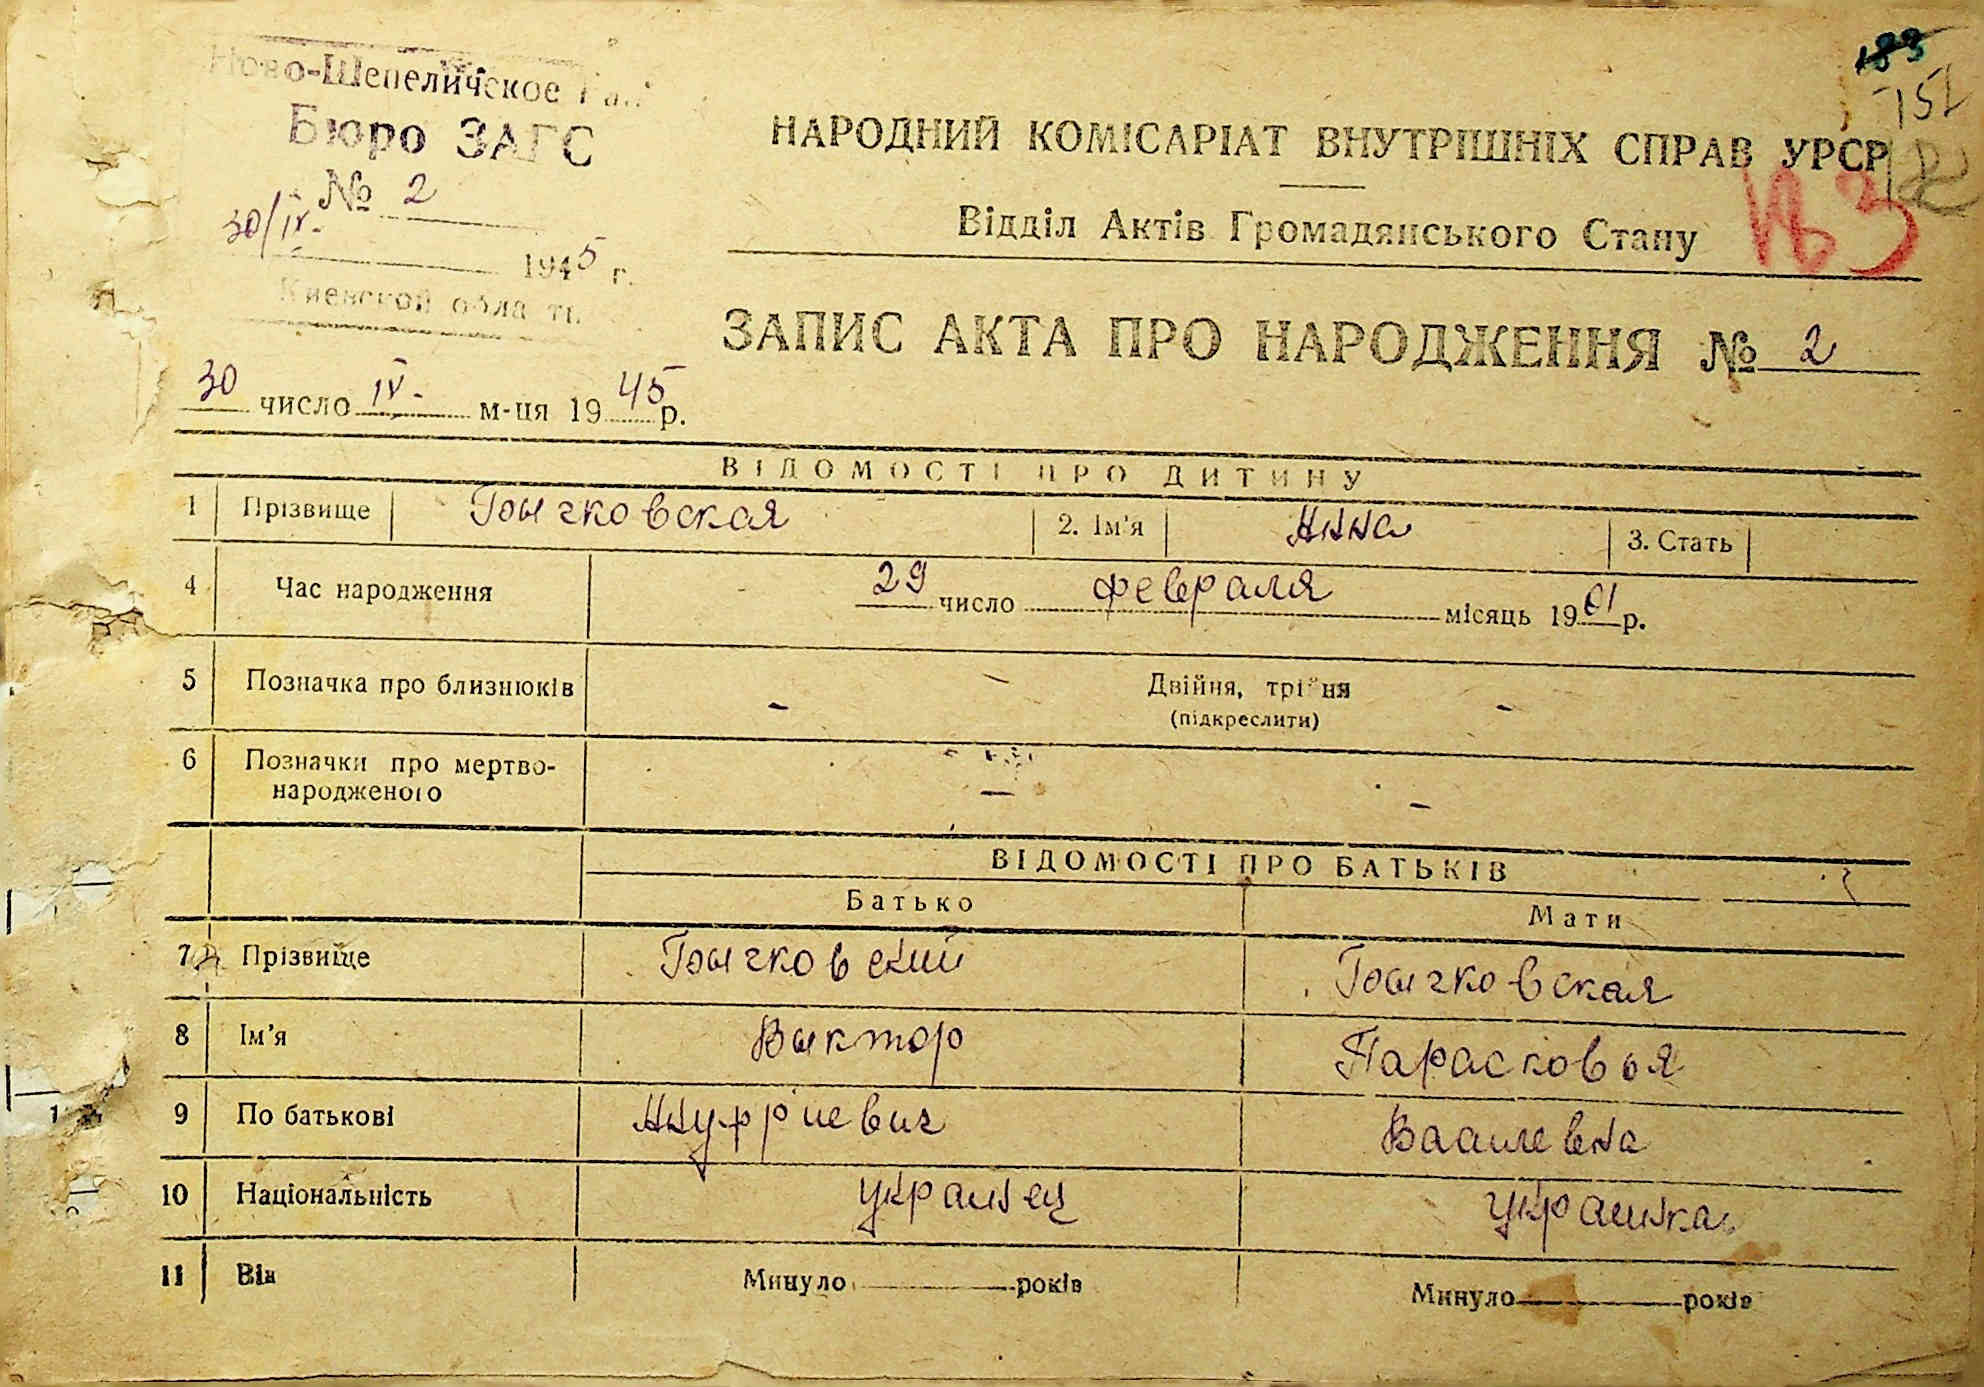 Ново-Шепеличское
Бюро ЗАГС
№ 2
30/IV.
1945 г.
Киевской области
183
151
НАРОДНИЙ КОМІСАРІАТ ВНУТРІШНІХ СПРАВ УРСР
Відділ Актів Громадянського Стану
№3
ЗАПИС АКТА ПРО НАРОДЖЕННЯ № 2
30 число IV. м-ця 1945 р.
ВІДОМОСТІ ПРО ДИТИНУ
1 Прізвище Бычковская 2. Ім'я Анна 3. Стать
4 Час народження 29 число февраля місяць 1901 р.
5 Позначка про близнюків - Двійня, трійня -
(підкреслити)
6 Позначки про мертво-
народженого — -
ВІДОМОСТІ ПРО БАТЬКІВ
Батько Мати
7 Прізвище Бычковский Бычковская
8 Ім'я Выктор Парасковья
9 По батькові Ануфриевич Василевна
10 Національність украинец украинка
11 Вік Минуло років Минуло років